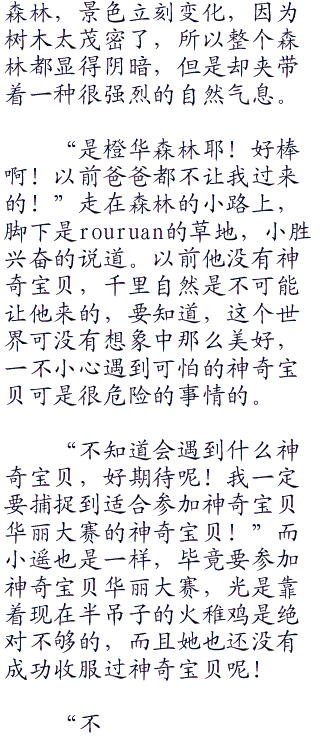 森林，景色立刻变化，因为
树木太茂密了，所以整个森
林都显得阴暗，但是却夹带
着一种很强烈的自然气息。
“是橙华森林耶！好棒
啊！以前爸爸都不让我过来
的！”走在森林的小路上，
脚下是rouruan的草地，小胜
兴奋的说道。以前他没有神
奇宝贝，千里自然是不可能
让他来的，要知道，这个世
界可没有想象中那么美好，
一不小心遇到可怕的神奇宝
贝可是很危险的事情的。
“不知道会遇到什么神
奇宝贝，好期待呢！我一定
要捕捉到适合参加神奇宝贝
华丽大赛的神奇宝贝！”而
小遥也是一样，毕竟要参加
神奇宝贝华丽大赛，光是靠
着现在半吊子的火稚鸡是绝
对不够的，而且她也还没有
成功收服过神奇宝贝呢！
“不